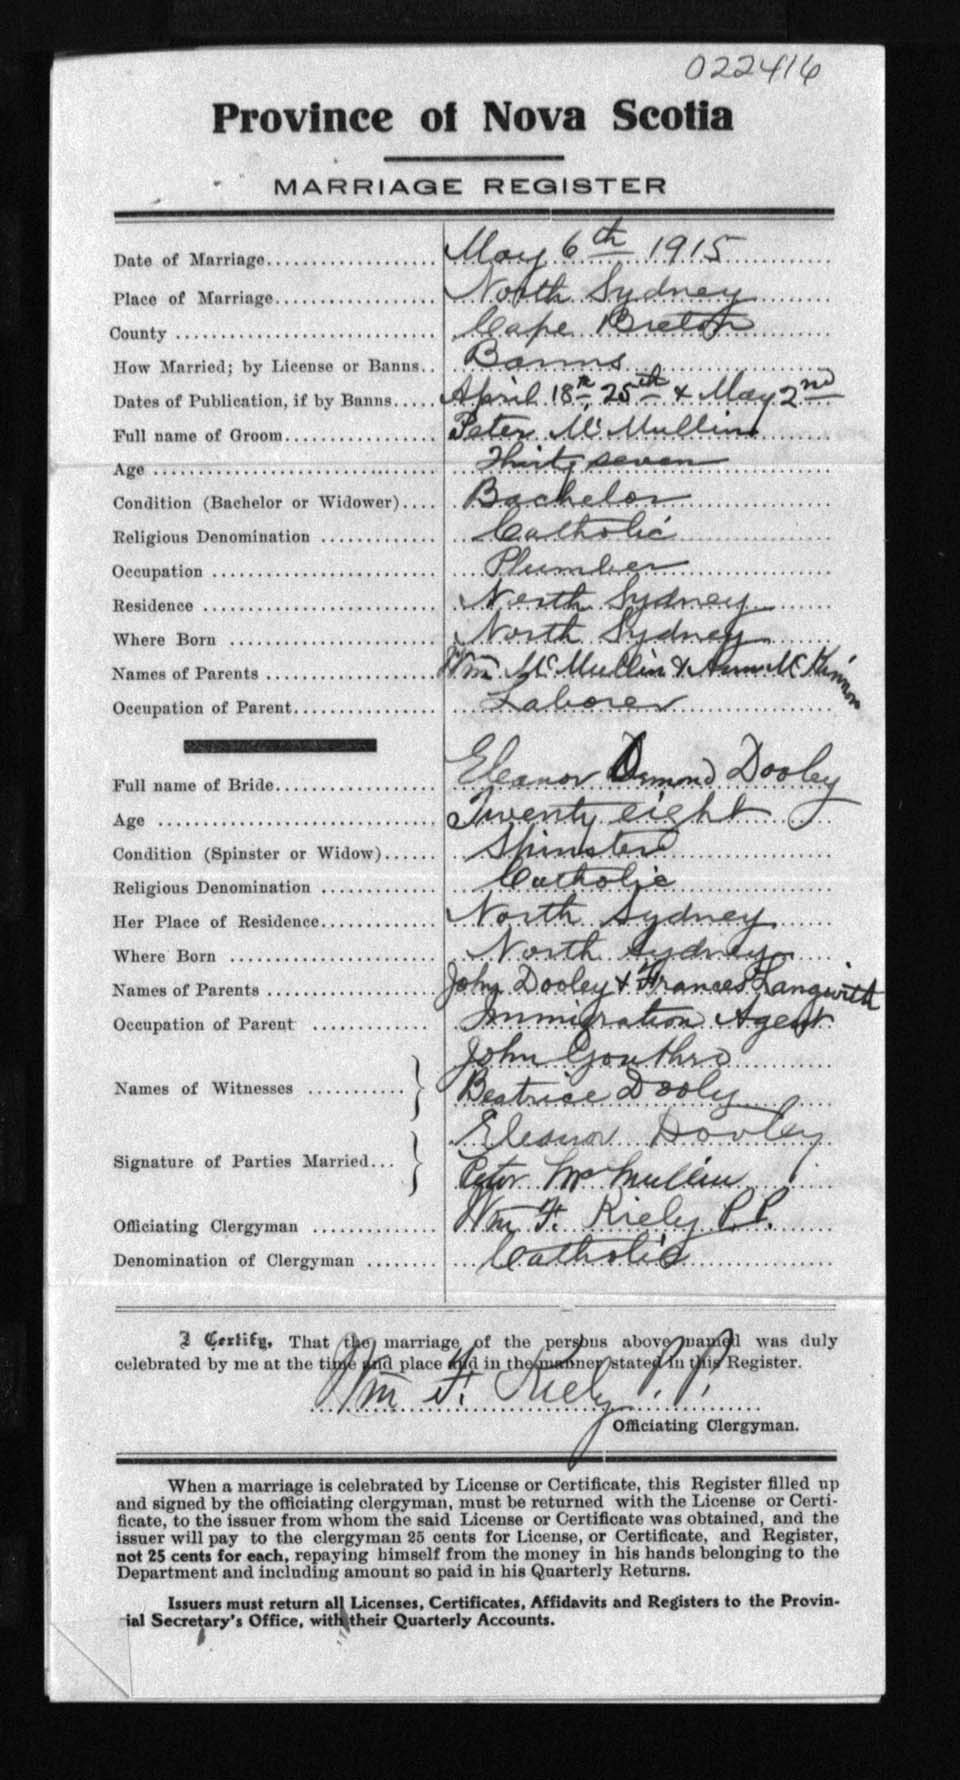 022416
Province of Nova Scotia
MARRIAGE REGISTER
Date of Marriage................... May 6th 1915
Place of Marriage.................. North Sydney
County ............................. Cape Breton
How Married; by License or Banns.. Banns
Dates of Publication, if by Banns..... April 18th, 25th & May 2nd
Full name of Groom................. Peter McMullin
Age ................................ Thirty seven
Condition (Bachelor or Widower).... Bachelor
Religious Denomination ............. Catholic
Occupation ......................... Plumber
Residence .......................... North Sydney
Where Born ......................... North Sydney
Names of Parents ................... Wm McMullin & Ann McKinnon
Occupation of Parent................ Laborer
Full name of Bride.................. Eleanor Osmond Dooley
Age ................................ Twenty eight
Condition (Spinster or Widow)...... Spinster
Religious Denomination ............. Catholic
Her Place of Residence............. North Sydney
Where Born ......................... North Sydney
Names of Parents ................... John Dooley & Frances Langwith
Occupation of Parent ............... Immigration Agent
John Gouthro
Names of Witnesses ........... } Beatrice Dooly
Eleanor Dooley
Signature of Parties Married... } Peter McMullin
Officiating Clergyman .............. Wm F. Kiely P.P.
Denomination of Clergyman ........ Catholic
I Certify, That the marriage of the persons above named was duly
celebrated by me at the time and place and in the manner stated in this Register.
Wm F. Kiely P.P.
Officiating Clergyman.
When a marriage is celebrated by License or Certificate, this Register filled up
and signed by the officiating clergyman, must be returned with the License or Certi-
ficate, to the issuer from whom the said License or Certificate was obtained, and the
issuer will pay to the clergyman 25 cents for License, or Certificate, and Register,
not 25 cents for each, repaying himself from the money in his hands belonging to the
Department and including amount so paid in his Quarterly Returns.
Issuers must return all Licenses, Certificates, Affidavits and Registers to the Provin-
ial Secretary's Office, with their Quarterly Accounts.